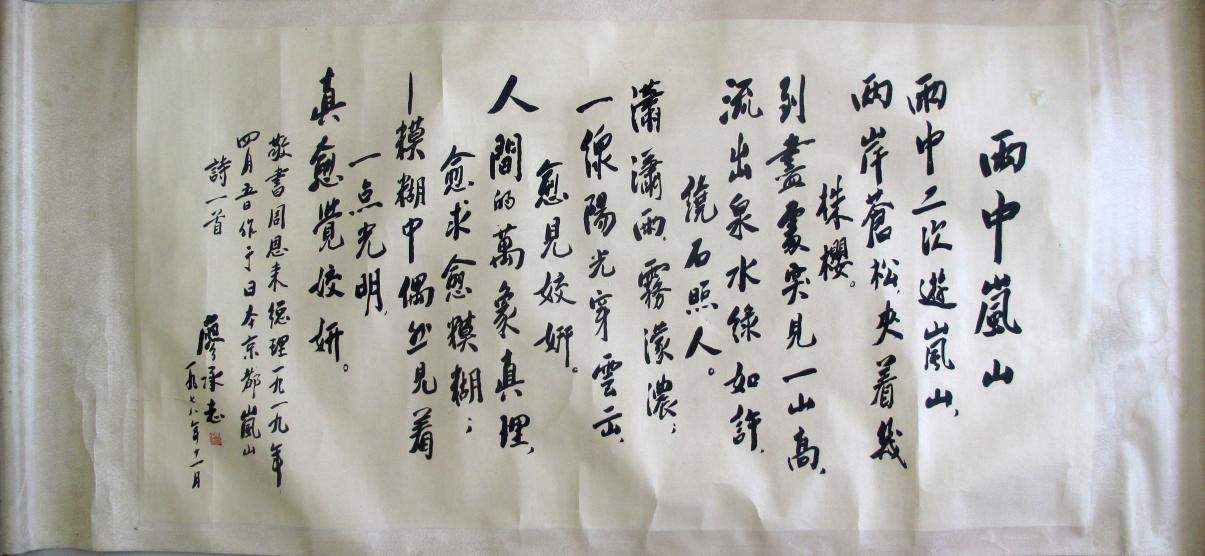 雨中嵐山
雨中二次遊嵐山，
兩岸蒼松，夾着幾
株櫻。
到盡處突見一山高，
流出泉水綠如許，
繞石照人。
瀟瀟雨，霧濛濃；
一線陽光穿雲出，
愈見姣妍。
人間的萬象真理，
愈求愈糢糊；
—糢糊中偶然見着
一点光明，
真愈覺姣妍。
敬書周恩来總理一九一九年
四月五日作于日本京都嵐山
詩一首
廖承志
一九七八年十一月